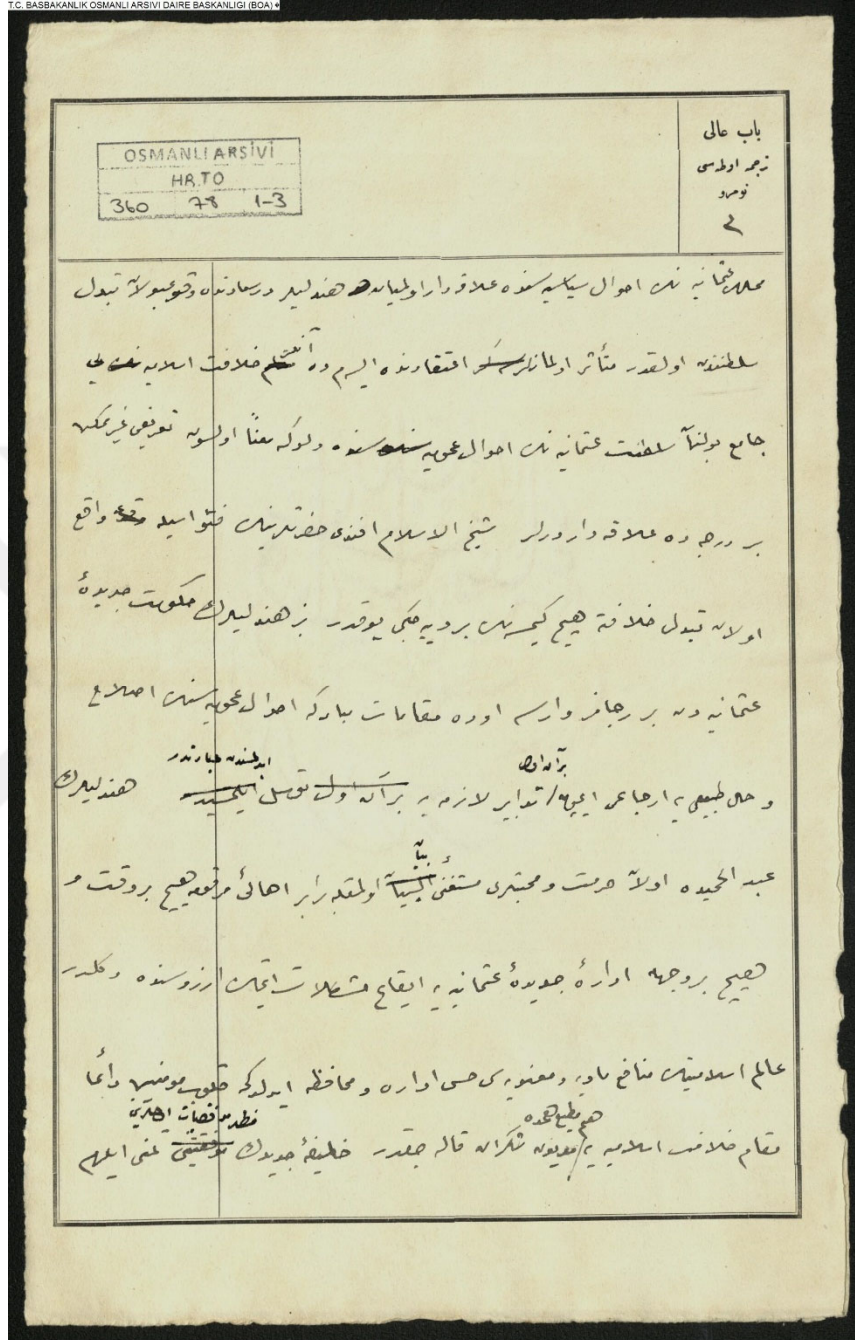 T.C. BASBAKANLIK OSMANLI ARSIVI DAIRE BASKANLIGI (BOA)
OSMANLI ARSİVİ
HR.TO
360 78 1-3
باب عالی
ترجمه اوطه‌سی
نومرو
ممالك عثمانیه نك احوال سیاسیه سنده علاقه دار اولمیان هندلیلر درسعادتده وقوعبولان تبدل
سلطنتدن اولقدر متأثر اولمازلر اعتقادنده ایسم ده خلافت اسلامیه یی
جامع بولنان سلطنت عثمانیه نك احوال عمومیه سنده ولوكه معناً اولسون تعریفی غیر ممكن
بر درجه ده علاقه دارد‌رلر شیخ الاسلام افندی حضرتلرینك فتواسیله واقع
اولان تبدل خلافته هیچ كیمسه نك بر دیه جكی یوقدر بز هندلیلرك حكومت جدیدهٔ
عثمانیه دن بر رجامز وارسه اوده مقامات مباركه احوال عمومیه سنك اصلاح
برآن اول ایدلمسندن عبارتدر
و حال طبیعی یه ارجاعی ایچون تدابیر لازمه یه برآن اول توسل هندلیلرك
عبد الحمیده اولان حرمت و محبتلری مستغنیٔ بیان اولمقله برابر اهالئ مرقومه هیچ بر وقت و
هیچ بر وجهله ادارهٔ جدیدهٔ عثمانیه یه ایقاع مشكلات ایتمك ارزوسنده دكلدر
عالم اسلامیتك منافع مادیه و معنویه سی حسن اداره و محافظه ایدلدكجه قلوب مومنین دائما
مقام خلافت اسلامیه یه مدیون شكران قاله جقدر خلیفهٔ جدیدك تمنی ایلرم